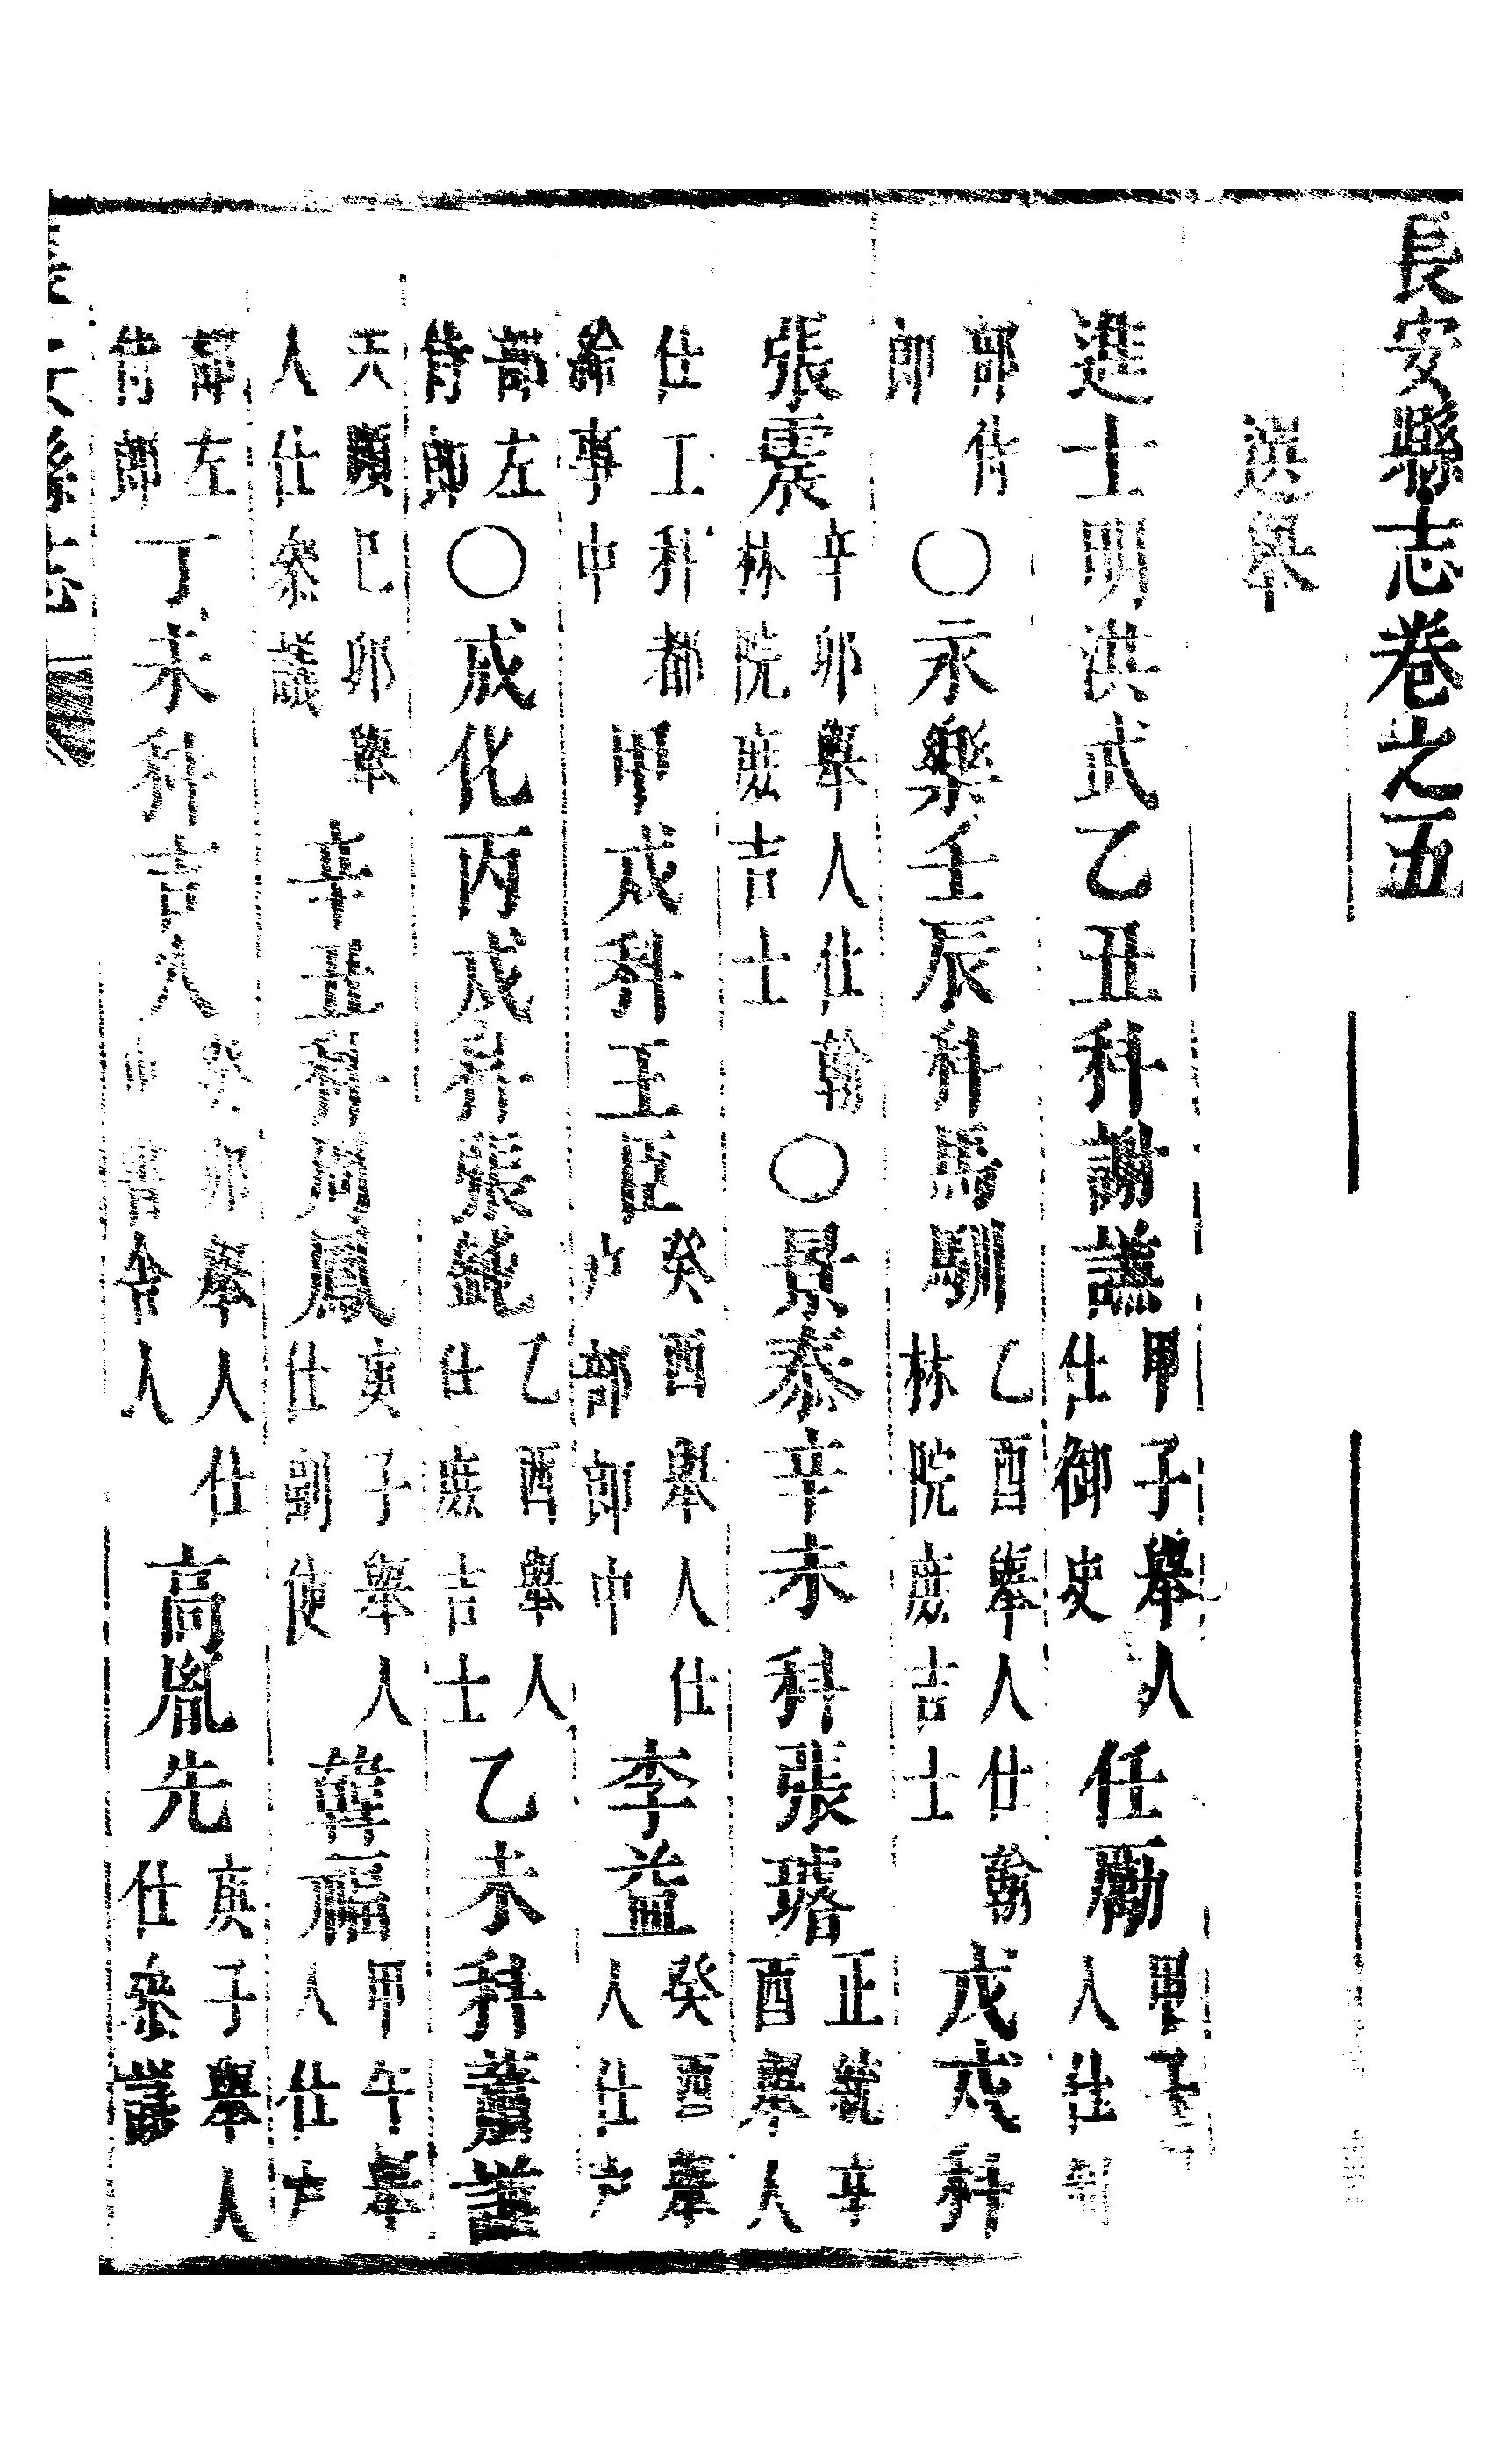 長安縣志卷之五
選舉
進士明洪武乙丑科謝謙甲子舉人仕御史任勵甲子人仕刑
部侍郎○永樂壬辰科馬馴乙酉舉人仕翰林院庶吉士戊戌科
張震辛卯舉人仕翰林院庶吉士○景泰辛未科張璿正統辛酉舉人
仕工科都給事中甲戌科王臣癸酉舉人仕户部郎中李益癸酉舉人仕户
部左侍郎○成化丙戌科張鈍乙酉舉人仕庶吉士乙未科蕭謙
天順己卯舉人仕叅議辛丑科周鳳庚子舉人仕副使韓福甲午舉人仕户
部左侍郎丁未科吉人癸卯舉人仕中書舍人高胤先庚子舉人仕叅議